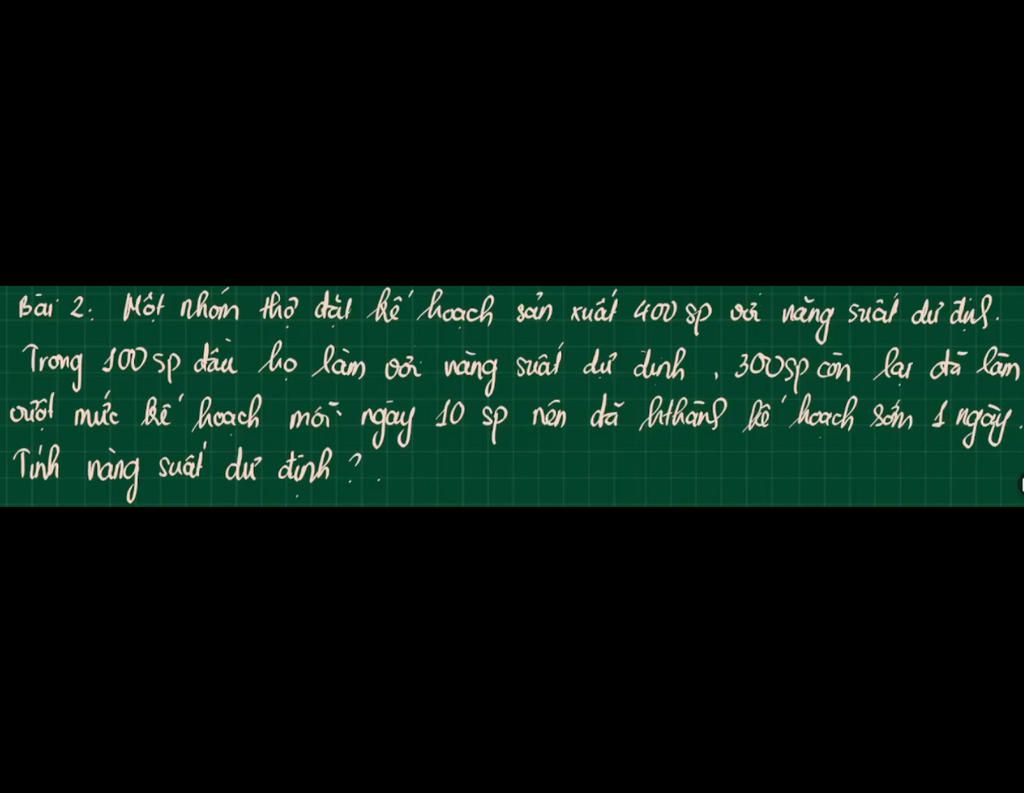 Bài 2: Một nhóm thợ đặt kế hoạch sản xuất 400 sp với năng suất dự định.
Trong 100 sp đầu họ làm với năng suất dự định, 300 sp còn lại đã làm
vượt mức kế hoạch mỗi ngày 10 sp nên đã hthành kế hoạch sớm 1 ngày.
Tính năng suất dự định?